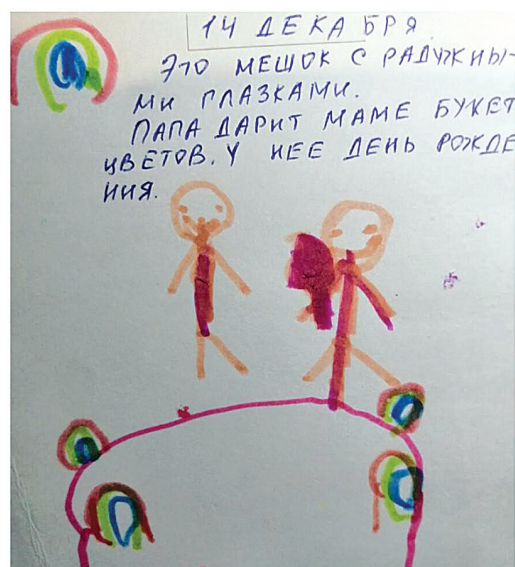 14 ДЕКАБРЯ
ЭТО МЕШОК С РАДУЖНЫ-
МИ ГЛАЗКАМИ.
ПАПА ДАРИТ МАМЕ БУКЕТ
ЦВЕТОВ. У НЕЕ ДЕНЬ РОЖДЕ
НИЯ.